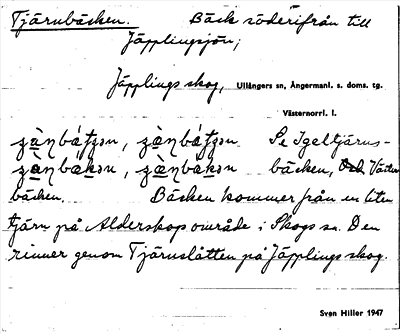 Tjärnbäcken. Bäck söderifrån till
Jäpplingsjön;
Jäpplings skog, Ullångers sn, Ångermanl. s. doms. tg.
Västernorrl. l.
Se Igeltjärns-
bäcken, Västra
bäcken. Bäcken kommer från en liten
tjärn på Alderskop område i Skogs sn. Den
rinner genom Tjärnslåtten på Jäpplings skog.
Sven Hiller 1947